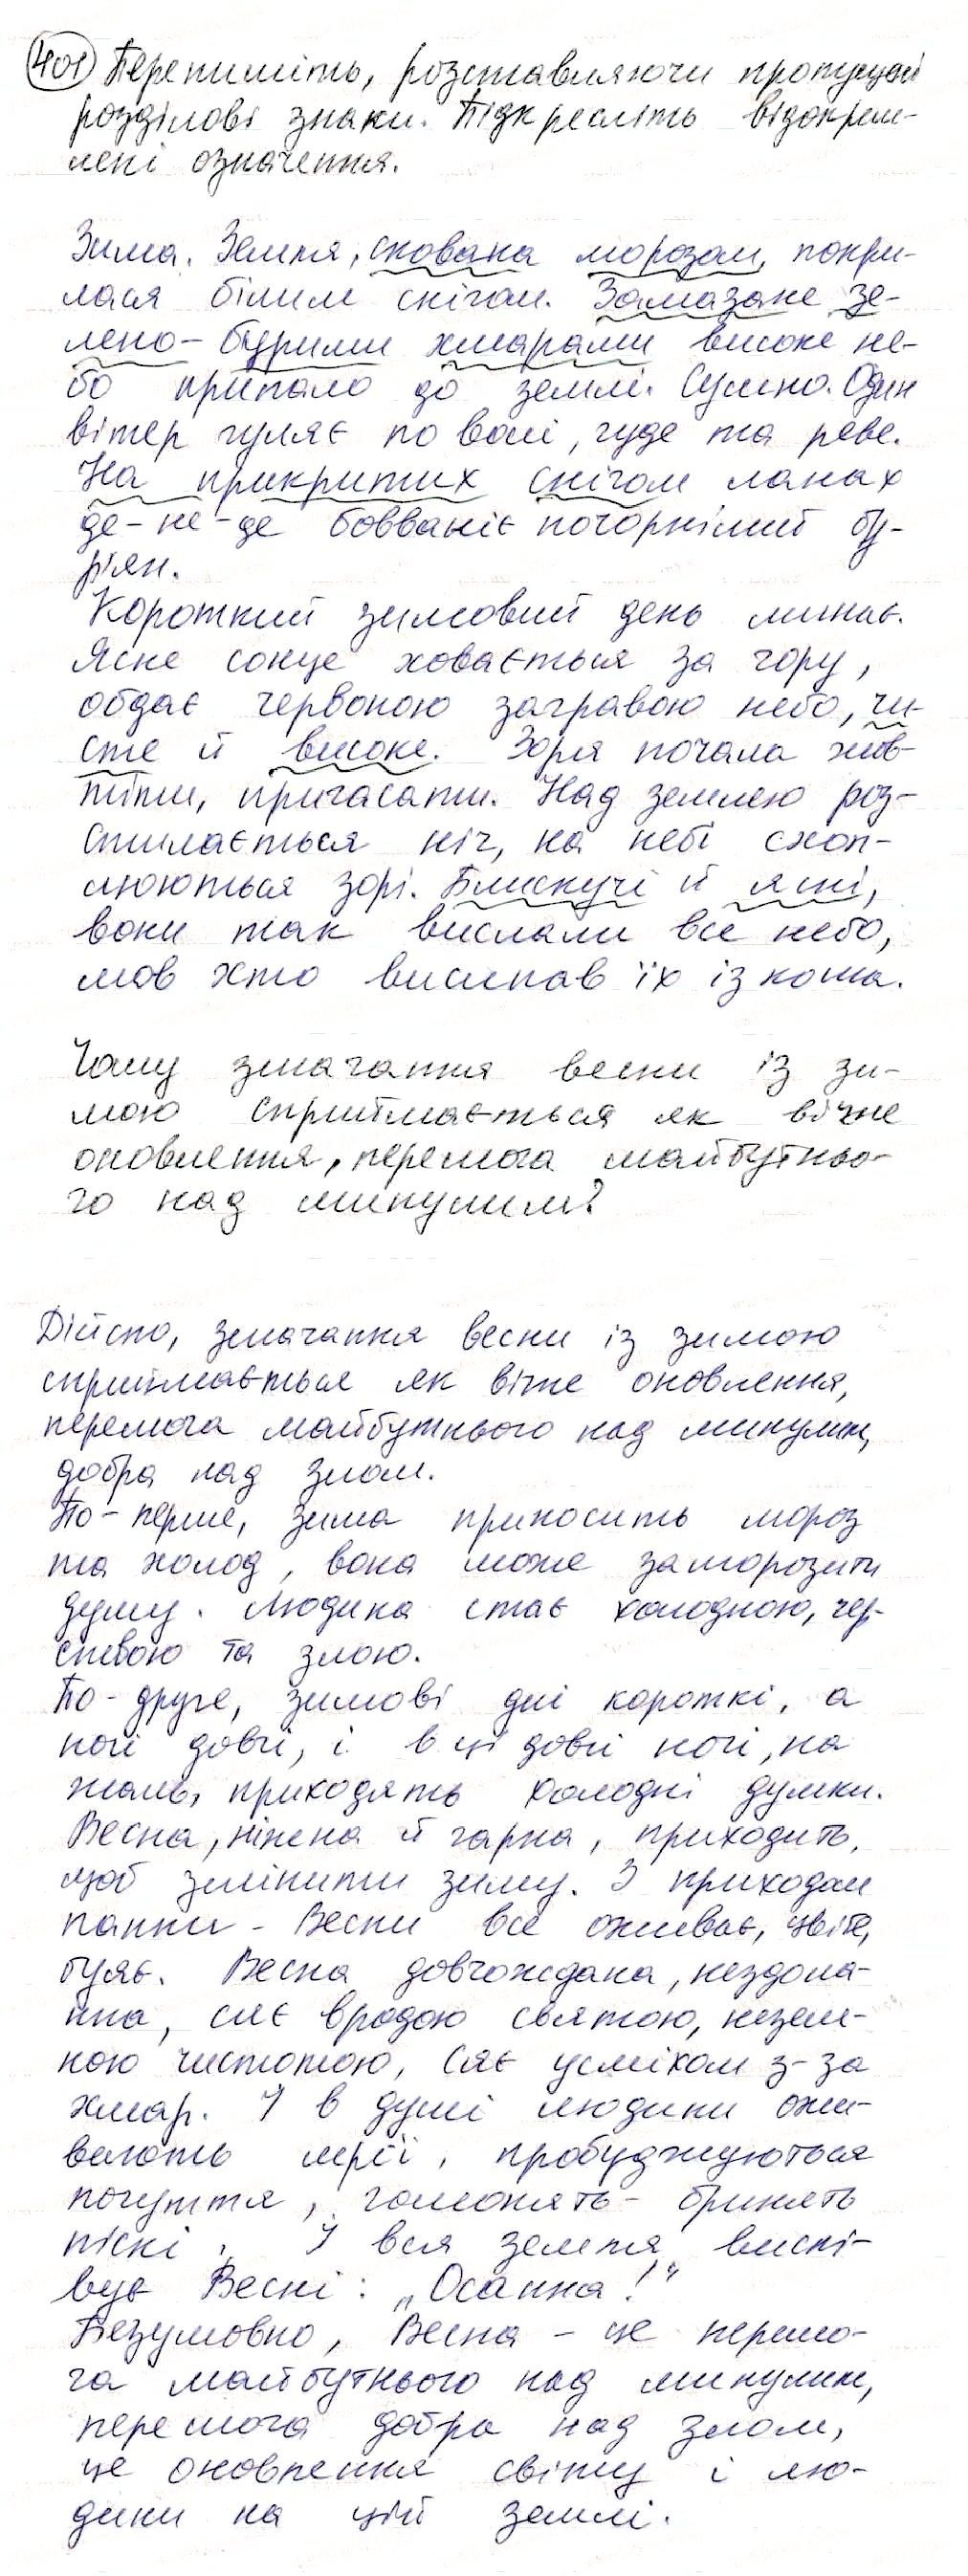 401 Перепишіть, розставляючи пропущені
розділові знаки. Підкресліть відокрем-
лені означення.
Зима. Земля, скована морозом, покри-
лася білим снігом. Замазане зе-
лено-бурими хмарами високе не-
бо припало до землі. Сумно. Один
вітер гуляє по волі, гуде та реве.
На прикритих снігом ланах
де-не-де бовваніє почорнілий бу-
р'ян.
Короткий зимовий день минає.
Ясне сонце ховається за гору,
обдає червоною загравою небо, чи-
сте й високе. Зоря почала жов-
тіти, пригасати. Над землею роз-
стилається ніч, на небі схоп-
люються зорі. Блискучі й ясні,
вони так вислали все небо,
мов хто висипав їх із коша.
Чому змагання весни із зи-
мою сприймається як вічне
оновлення, перемога майбутньо-
го над минулим?
Дійсно, змагання весни із зимою
сприймається як вічне оновлення,
перемога майбутнього над минулим,
добра над злом.
По-перше, зима приносить мороз
та холод, вона може заморозити
душу. Людина стає холодною, чер-
ствою та злою.
По-друге, зимові дні короткі, а
ночі довгі, і в ці довгі ночі, на
жаль, приходять холодні думки.
Весна, ніжна й гарна, приходить,
щоб змінити зиму. З приходом
панни-Весни все оживає, цвіте,
буяє. Весна довгождана, нездола-
нна, сяє вродою святою, незем-
ною чистотою, сяє усміхом з-за
хмар. І в душі людини ожи-
вають мрії, пробуджуються
почуття, гомонять-бринять
піскі. І вся земля виспі-
вує Весні: „Осанна!"
Безумовно, Весна - це перемо-
га майбутнього над минулим,
перемога добра над злом,
це оновлення світу і лю-
дини на цій землі.